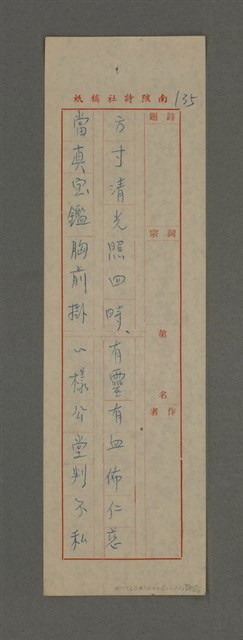 南陔詩社稿紙
135
詩題
詞宗
第
名
作者
方寸清光照四時、有靈有血佈仁慈
當真寶鑑胸前掛 一樣公堂判不私